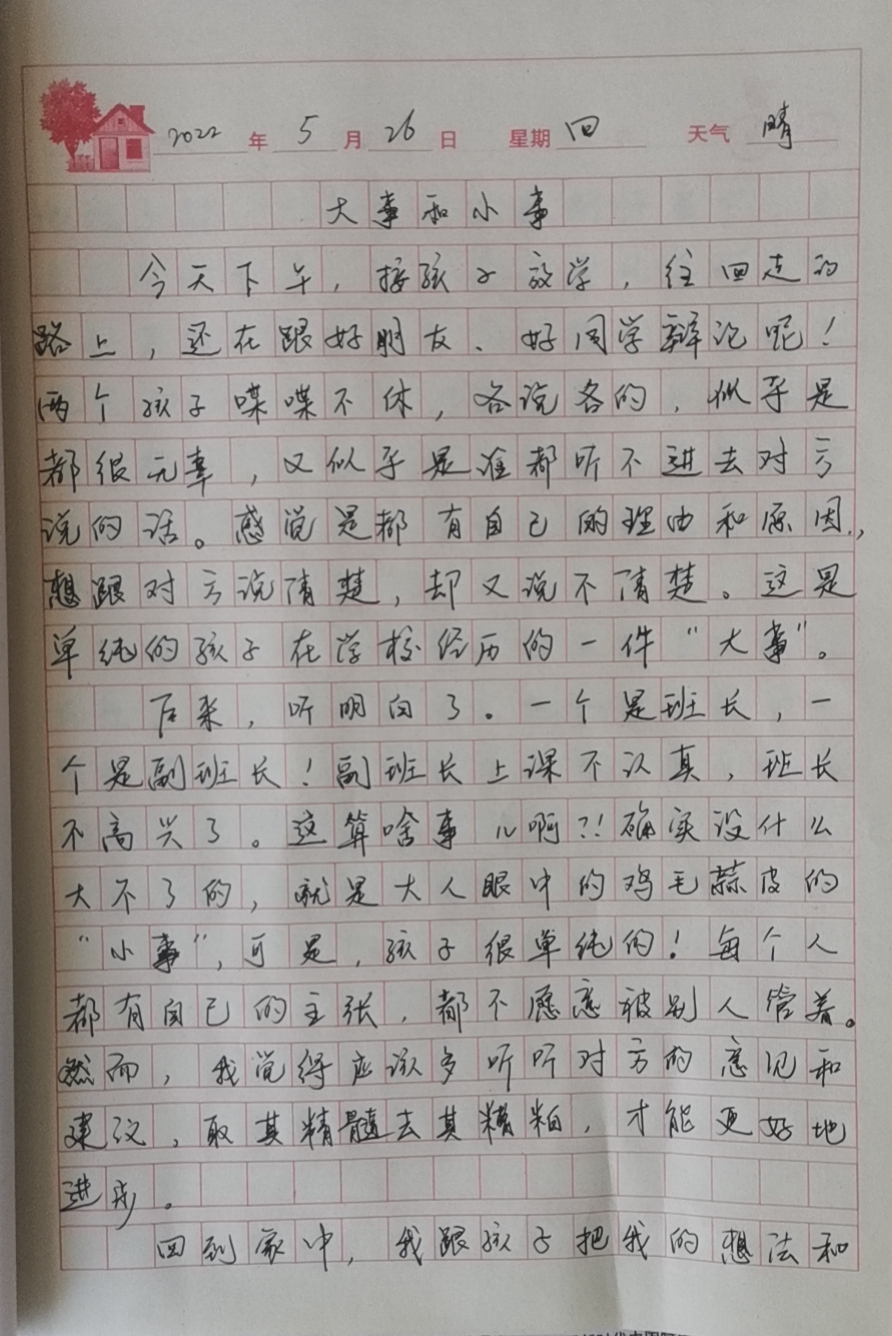 2022 年 5 月 26 日 星期 四 天气 晴
大事和小事
今天下午，接孩子放学，往回走的
路上，还在跟好朋友、好同学辩论呢！
两个孩子喋喋不休，各说各的，似乎是
都很无辜，又似乎是谁都听不进去对方
说的话。感觉是都有自己的理由和原因，
想跟对方说清楚，却又说不清楚。这是
单纯的孩子在学校经历的一件“大事”。
后来，听明白了。一个是班长，一
个是副班长！副班长上课不认真，班长
不高兴了。这算啥事儿啊？！确实没什么
大不了的，就是大人眼中的鸡毛蒜皮的
“小事”，可是，孩子很单纯的！每个人
都有自己的主张，都不愿意被别人管着。
然而，我觉得应该多听听对方的意见和
建议，取其精髓去其糟粕，才能更好地
进步。
回到家中，我跟孩子把我的想法和